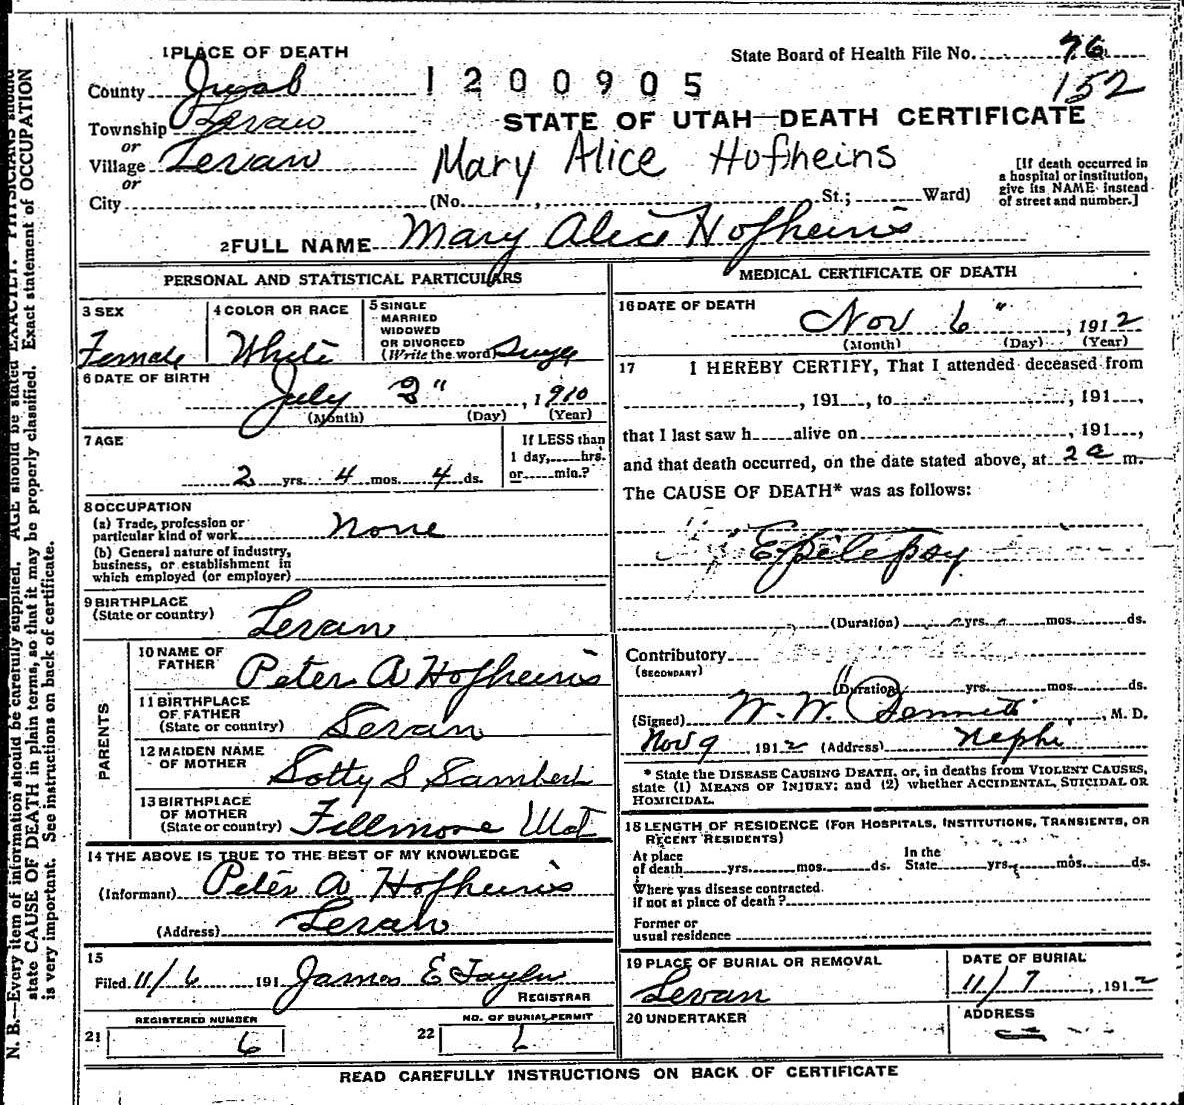 1 PLACE OF DEATH
State Board of Health File No. 76
County Juab
1200905
152
Township Levan
STATE OF UTAH—DEATH CERTIFICATE
or
Village Levan
Mary Alice Hofheins
[If death occurred in a hospital or institution, give its NAME instead of street and number.]
or
City (No. , St.; Ward)
2 FULL NAME Mary Alice Hofheins
PERSONAL AND STATISTICAL PARTICULARS
3 SEX Female
4 COLOR OR RACE White
5 SINGLE MARRIED WIDOWED OR DIVORCED (Write the word) Single
6 DATE OF BIRTH July 2" , 1910
(Month) (Day) (Year)
7 AGE
If LESS than 1 day, hrs. or min.?
2 yrs. 4 mos. 4 ds.
8 OCCUPATION
(a) Trade, profession or particular kind of work None
(b) General nature of industry, business, or establishment in which employed (or employer)
9 BIRTHPLACE (State or country) Levan
PARENTS
10 NAME OF FATHER Peter A Hofheins
11 BIRTHPLACE OF FATHER (State or country) Levan
12 MAIDEN NAME OF MOTHER Lotty S Lambert
13 BIRTHPLACE OF MOTHER (State or country) Fillmore Utot
14 THE ABOVE IS TRUE TO THE BEST OF MY KNOWLEDGE
(Informant) Peter A Hofheins
(Address) Levan
15
Filed 11/6 191 James E Taylor
REGISTRAR
21 REGISTERED NUMBER 6
22 NO. OF BURIAL PERMIT 6
MEDICAL CERTIFICATE OF DEATH
16 DATE OF DEATH
Nov 6" , 1912
(Month) (Day) (Year)
17 I HEREBY CERTIFY, That I attended deceased from
, 191 , to , 191 ,
that I last saw h alive on , 191 ,
and that death occurred, on the date stated above, at 2 a m.
The CAUSE OF DEATH* was as follows:
Epilepsy
(Duration) yrs. mos. ds.
Contributory
(SECONDARY)
(Duration) yrs. mos. ds.
(Signed) W. W. Bennett , M. D.
Nov 9 1912 (Address) Nephi
* State the DISEASE CAUSING DEATH, or, in deaths from VIOLENT CAUSES,
state (1) MEANS OF INJURY; and (2) whether ACCIDENTAL, SUICIDAL OR
HOMICIDAL.
18 LENGTH OF RESIDENCE (FOR HOSPITALS, INSTITUTIONS, TRANSIENTS, OR
RECENT RESIDENTS)
At place of death yrs. mos. ds. In the State yrs. mos. ds.
Where was disease contracted.
if not at place of death?
Former or
usual residence
19 PLACE OF BURIAL OR REMOVAL Levan
DATE OF BURIAL 11/7 , 1912
20 UNDERTAKER
ADDRESS
READ CAREFULLY INSTRUCTIONS ON BACK OF CERTIFICATE
N. B.—Every item of information should be carefully supplied. AGE should be stated EXACTLY. PHYSICIANS should
state CAUSE OF DEATH in plain terms, so that it may be properly classified. Exact statement of OCCUPATION
is very important. See instructions on back of certificate.